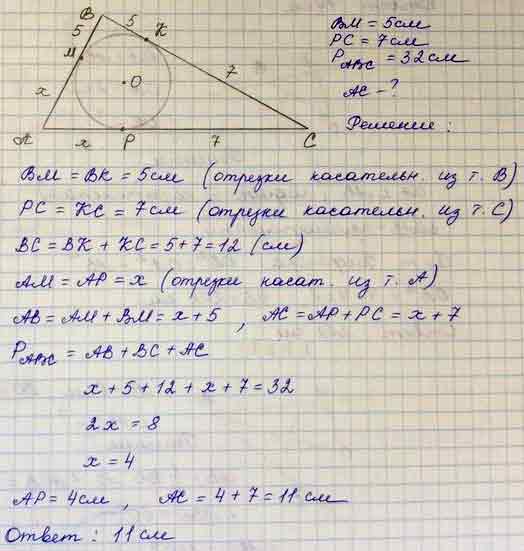 B 5 K
5
M
7
x
O
A x P 7 C
BM = 5 см
PC = 7 см
P_ABC = 32 см
AC - ?
Решение :
BM = BK = 5 см (отрезки касательн. из т. B)
PC = KC = 7 см (отрезки касательн. из т. C)
BC = BK + KC = 5 + 7 = 12 (см)
AM = AP = x (отрезки касат. из т. A)
AB = AM + BM = x + 5 , AC = AP + PC = x + 7
P_ABC = AB + BC + AC
x + 5 + 12 + x + 7 = 32
2x = 8
x = 4
AP = 4 см , AC = 4 + 7 = 11 см
Ответ : 11 см